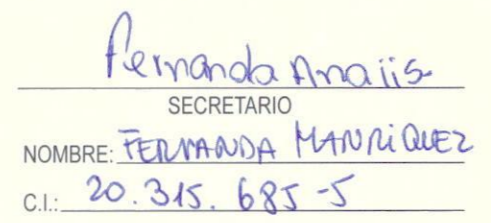 Fernanda Anaiis
SECRETARIO
NOMBRE: FERNANDA MANRiQUEZ
C.I.: 20.315.685-5